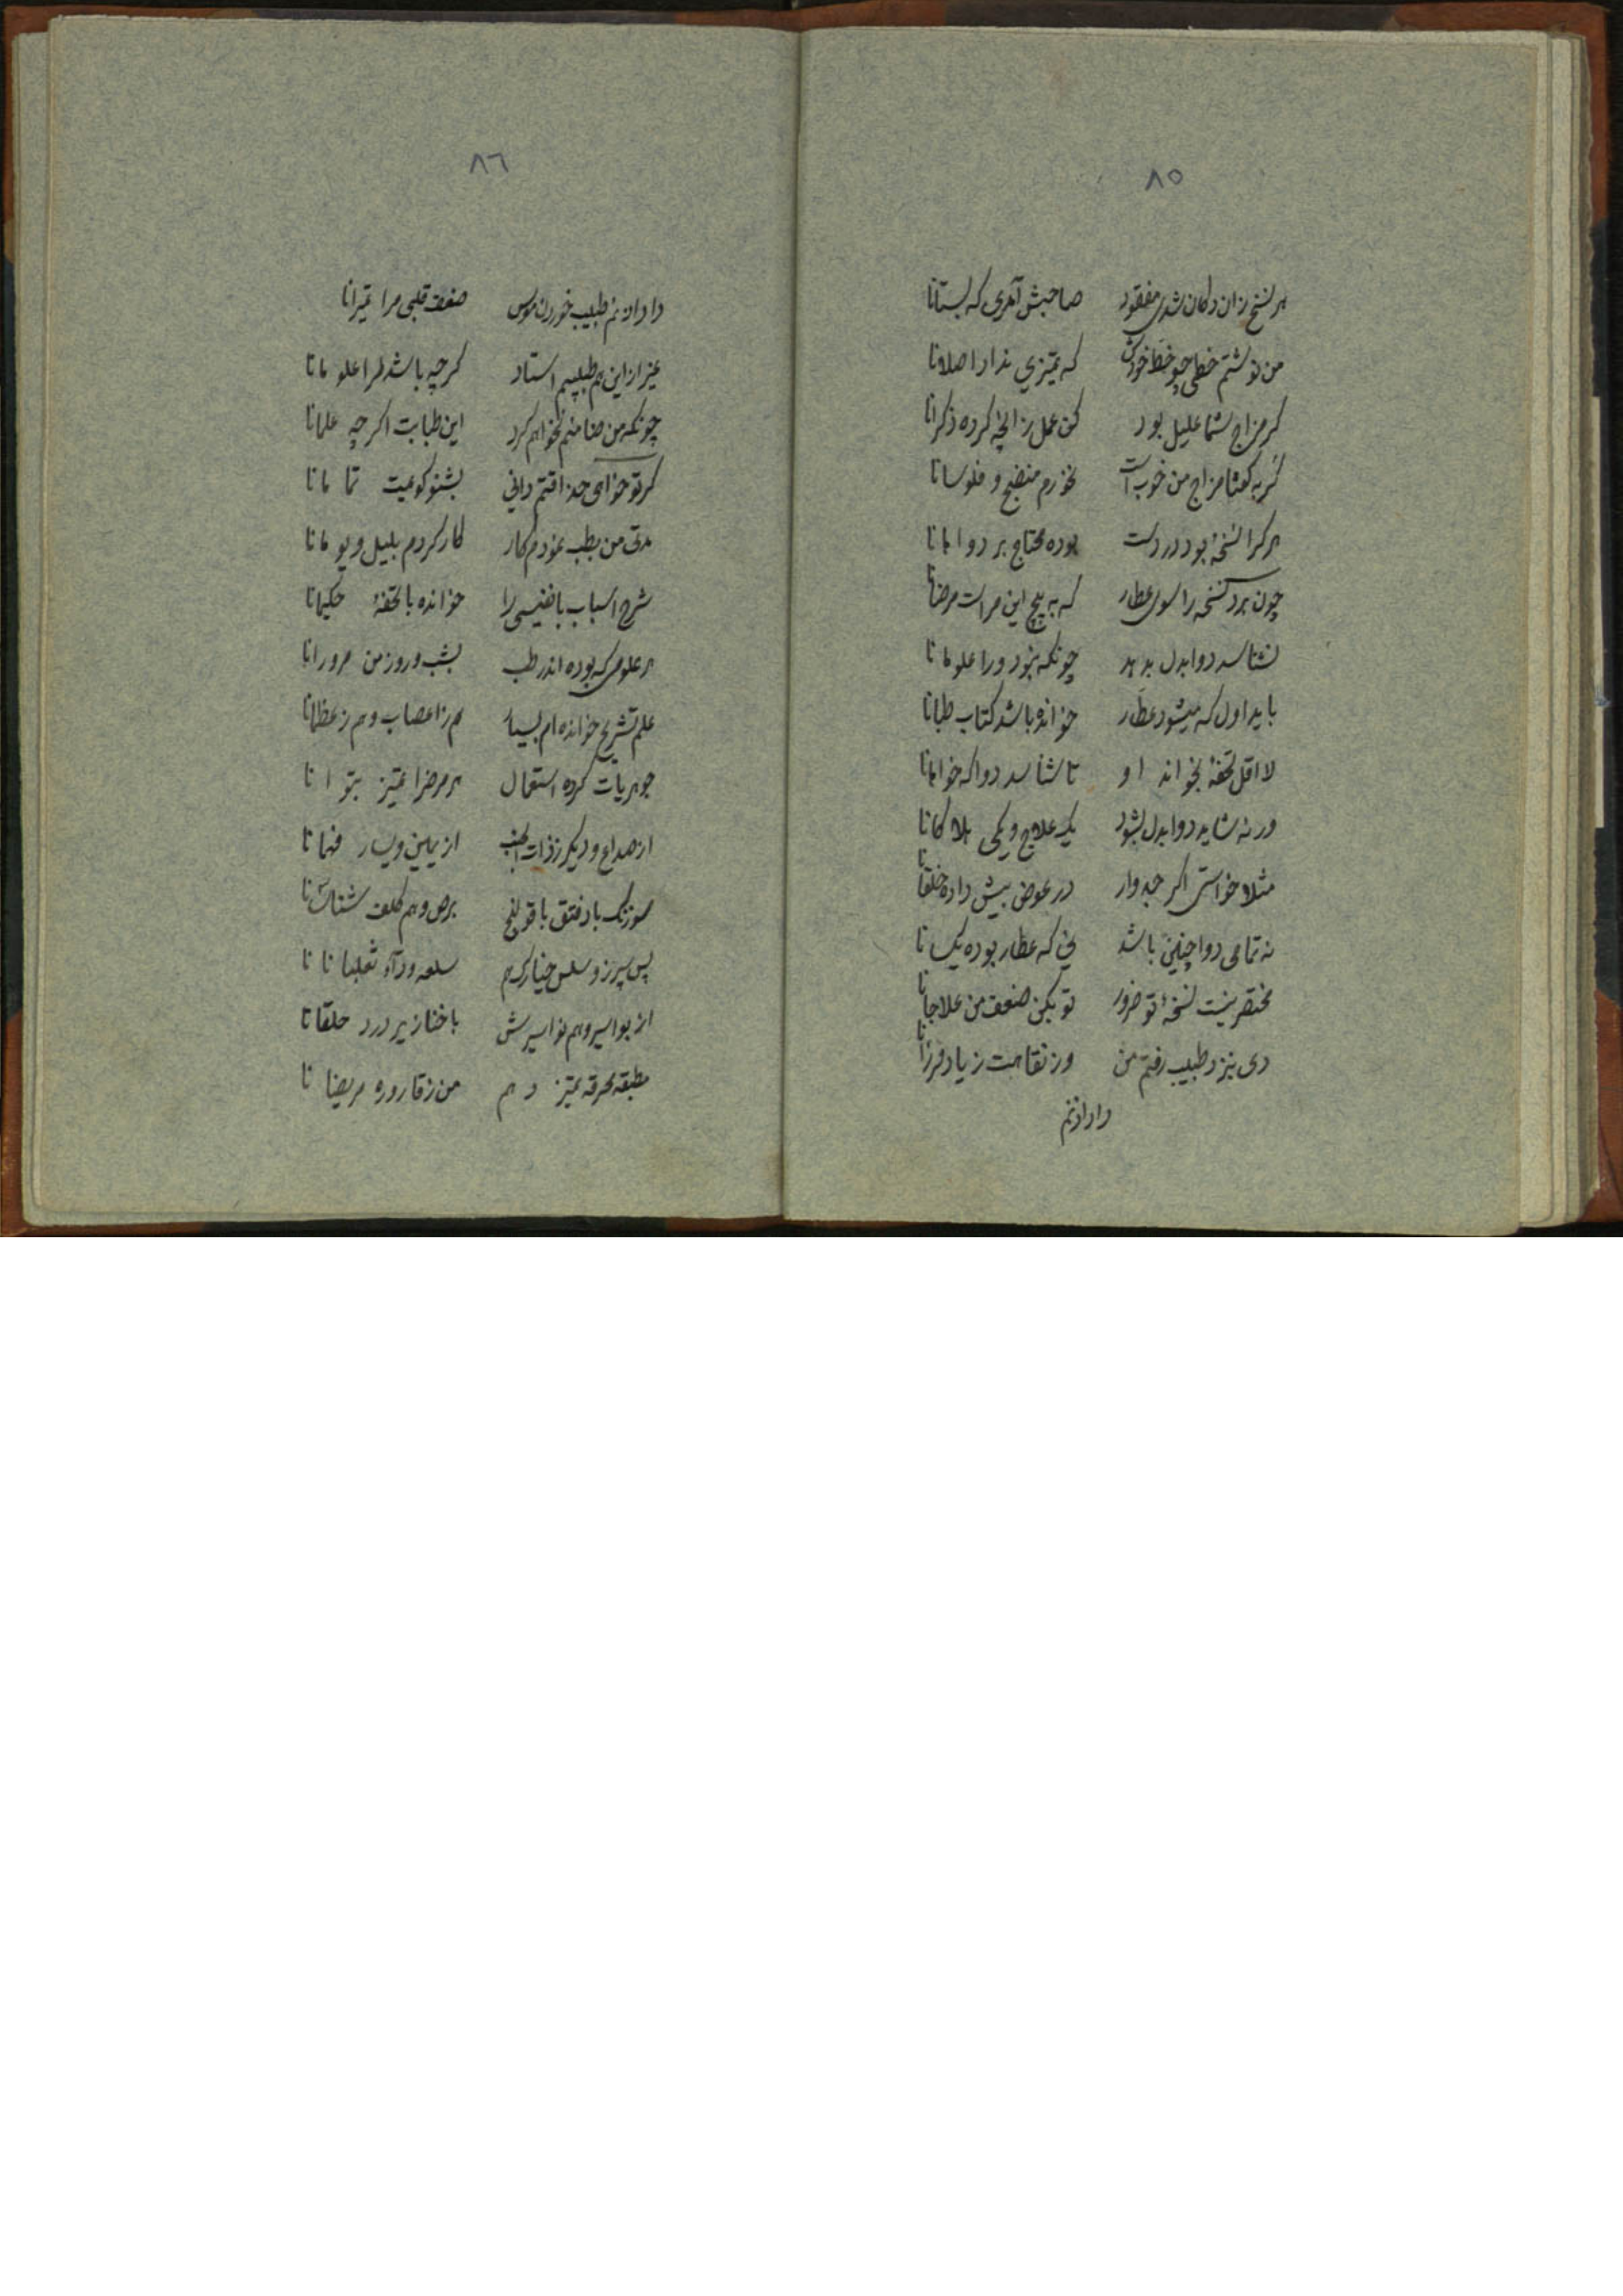 ٨٥
هر نسخ زان دکان شدی مفقود صاحبش آمدی که بستانا
من نوشتم خطی چو خط خودش که تمیزی ندارد اصلانا
گر مزاج شما علیل بود کن عمل زانچه کرده ذکرانا
گر بگفتا مزاج من خوب است نخورم منضج و فلوسانا
هر کرا نسخهٔ بود در دست بوده محتاج بر دوا مانا
چون برد نسخه را سوی عطار که به پیچ این مراست مرضانا
نشناسد دوا بدل بدهد چونکه نبود ورا علومانا
باید اول که میشود عطار خوانده باشد کتاب طبانا
لااقل تحفهٔ بخواند او تا شناسد دوا که خواهانا
ورنه شاید دوا بدل بشود یک علاج و یکی هلاکانا
مثلا خواستی اگر جدوار در عوض بیش داده خلقانا
نه تمامی دوا چنین باشد نی که عطار بوده یکسانا
مختصر نیست نسخهٔ تو ضرور تو بکن ضعف من علاجانا
دی بنزد طبیب رفتم من وز نقاهت زیاد لرزانا
داد اذنم
٨٦
داد اذنم طبیب خوردن موس ضعف قلبی مرا
غیر از این هم طبیبم استاد گرچه باشد مرا علومانا
چونکه من ضامنم نخواهم کرد این طبابت اگرچه علمانا
گر تو خواهی حذاقتم دانی بشنو گویمت تمامانا
مدتی من بطب نمودم کار کار کردم بلیل و یومانا
شرح اسباب با نفیسی را خوانده با تحفهٔ حکیمانا
هر علومی که بوده اندر طب بشب و روز من مرورانا
علم تشریح خوانده ام بسیار هم ز اعصاب و هم ز عظمانا
جوهریات کرده استعمال هر مرض را تمیز بتوانا
از صداع و دیگر ز ذات الجنب از یمین و یسار فهمانا
سوزنک باد فتق با قولنج برص و هم کلف شناسانا
پس سپرز و سلس خیارک هم سلعه و داء ثعلبانانا
از بواسیر و هم نواسیرش با خنازیر درد حلقانا
مطبقه محرقه تمیز دهم من ز قاروره مریضانا